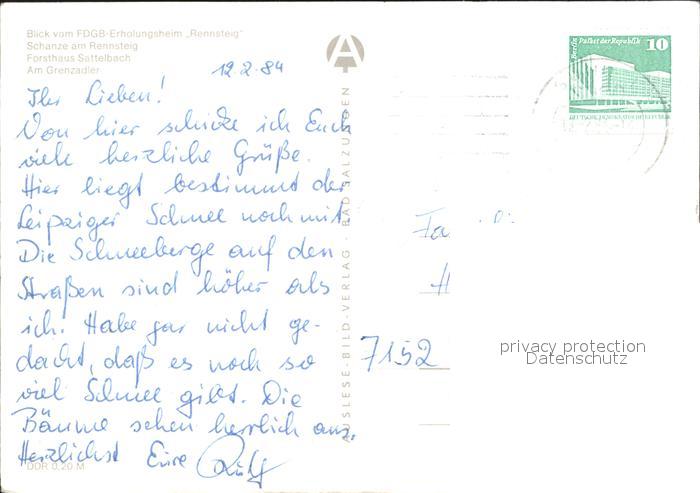 Blick vom FDGB-Erholungsheim „Rennsteig"
Schanze am Rennsteig
Forsthaus Sattelbach
Am Grenzadler
12.2.84
Ihr Lieben!
Von hier schicke ich Euch
viele herzliche Grüße.
Hier liegt bestimmt der
Leipziger Schnee noch mit.
Die Schneeberge auf den
Straßen sind höher als
ich. Habe gar nicht ge-
dacht, daß es noch so
viel Schnee gibt. Die
Bäume sehen herrlich aus.
Herzlichst Eure
DDR 0,20 M
AUSLESE-BILD-VERLAG · BAD SALZUNGEN
Berlin Palast der Republik 10
DEUTSCHE DEMOKRATISCHE REPUBLIK
Fa
H
7152
privacy protection
Datenschutz